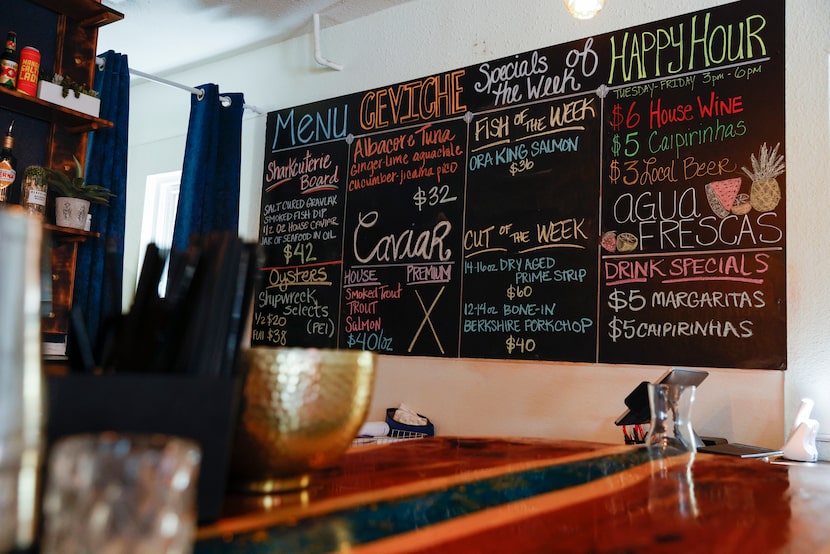 Menu
Sharkcuterie
Board
SALT CURED GRAVLAX
SMOKED FISH DIP
1/2 OZ HOUSE CAVIAR
JAR OF SEAFOOD IN OIL
$42
Oysters
Shipwreck
Selects
(PEI)
1/2 $20
Full $38
GEVICHE
Albacore Tuna
Ginger-lime aguachile
cucumber-jicama pico
$32
CaviaR
HOUSE
Smoked Trout
TROUT
SALMON
$40/oz
PREMIUM
Specials of
the Week
FISH OF THE WEEK
ORA KING SALMON
$36
CUT OF THE WEEK
14-16oz DRY AGED
PRIME STRIP
$60
12-14oz BONE-IN
BERKSHIRE PORKCHOP
$40
HAPPY HOUR
TUESDAY-FRIDAY 3pm-6pm
$6 HOUSE WINE
$5 Caipirinhas
$3 Local Beer
AGUA
FRESCAS
DRINK SPECIALS
$5 MARGARITAS
$5 CAIPIRINHAS